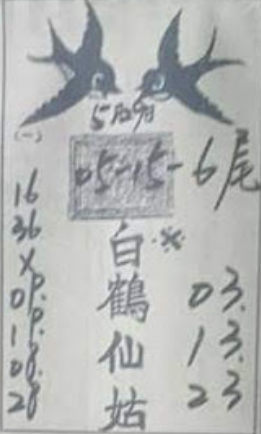 5月29日
(一)
05-15-6尾
16
36
X
09.
19.
08.
28
白鶴仙姑
03.
13.
23